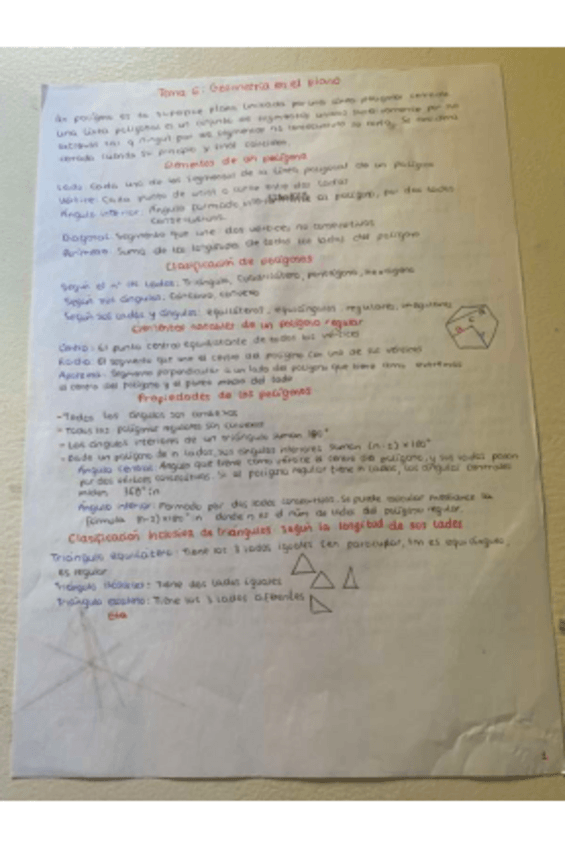 Tema 6: Geometría en el plano
Un polígono es la superficie plana limitada por una línea poligonal cerrada
una línea poligonal es un conjunto de segmentos unidos por sus
extremos y ningún par de segmentos no se corta. Se considera
cerrada cuando su principio y final coinciden.
Elementos de un polígono
Lado: Cada uno de los segmentos de la línea poligonal de un polígono
Vértice: Cada punto de unión o corte entre dos lados
Ángulo interior: Ángulo formado al polígono, por dos lados
consecutivos.
Diagonal: Segmento que une dos vértices no consecutivos
Perímetro: Suma de las longitudes de todos los lados del polígono
Clasificación de polígonos
Según el nº de lados: Triángulo, cuadrilátero, pentágono, hexágono
Según sus ángulos: Cóncavo, convexo
Según sus lados y ángulos: equiláteros, equiángulos, regulares, irregulares
Elementos notables de un polígono regular
Centro: El punto centro equidistante de todos los vértices
Radio: El segmento que une el centro del polígono con uno de sus vértices
Apotema: Segmento perpendicular a un lado del polígono que tiene como extremos
el centro del polígono y el punto medio del lado
Propiedades de los polígonos
- Todos los ángulos son
- Todos los polígonos regulares son convexos
- Los ángulos interiores de un triángulo suman 180°
- Dado un polígono de n lados, sus ángulos interiores suman (n-2) x 180°
Ángulo central: Ángulo que tiene como vértice el centro del polígono, y sus lados pasan
por dos vértices consecutivos. Si el polígono regular tiene n lados, los ángulos centrales
miden 360°:n
Ángulo interior: Formado por dos lados consecutivos. Se puede calcular mediante la
fórmula (n-2)x180°:n donde n es el núm de lados del polígono regular.
Clasificación inclusiva de triángulos: Según la longitud de sus lados
Triángulo equilátero: Tiene los 3 lados iguales (en particular, tm es equiángulo,
es regular
Triángulo isósceles: Tiene dos lados iguales
Triángulo escaleno: Tiene los 3 lados diferentes
1